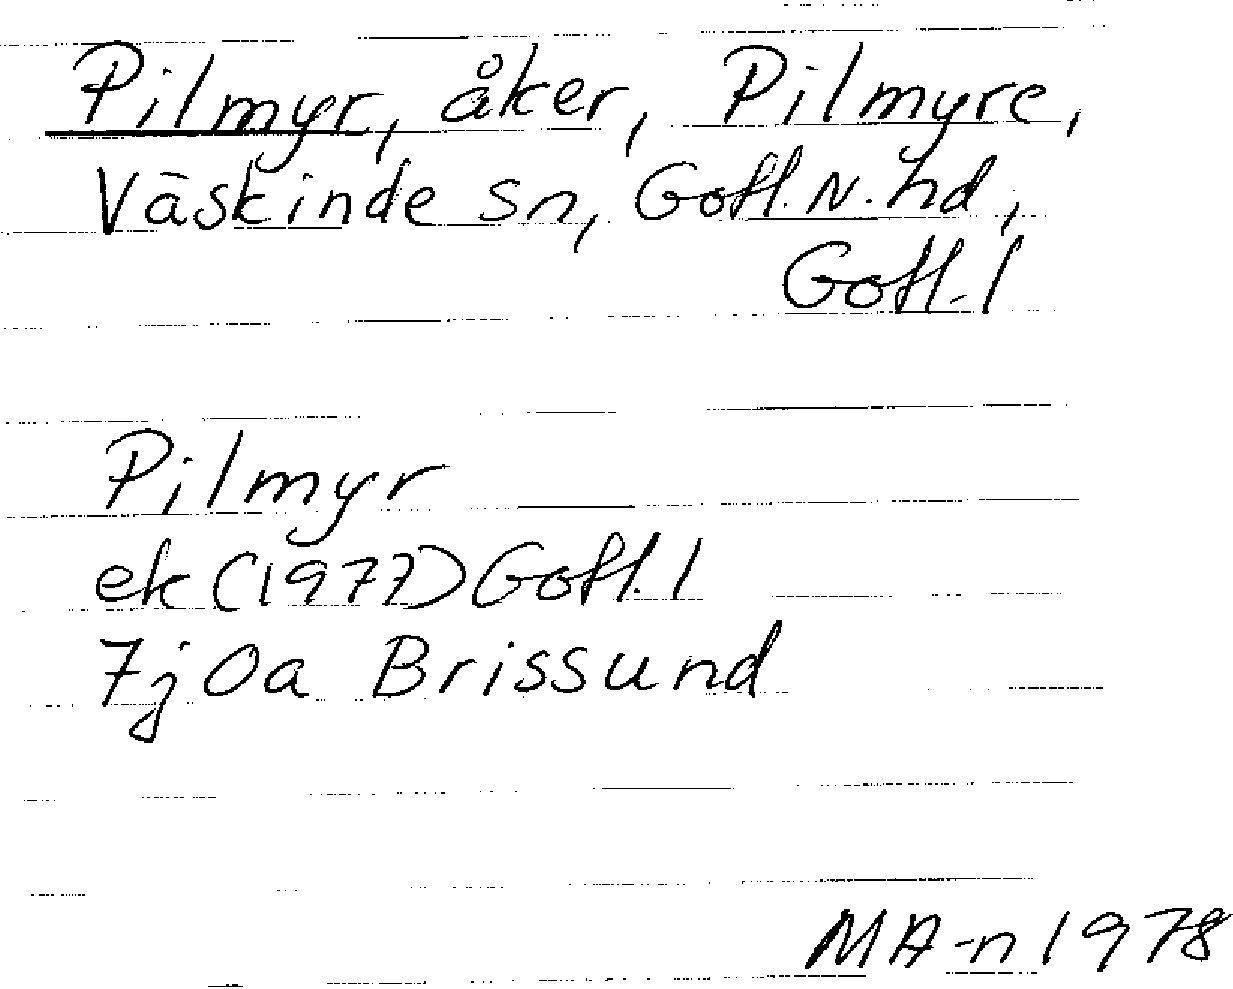 Pilmyr, åker, Pilmyre,
Väskinde sn, Gotl. N. hd,
Gotl. l
Pilmyr
ek (1977) Gotl. l
7j0a Brissund
MA-n 1978